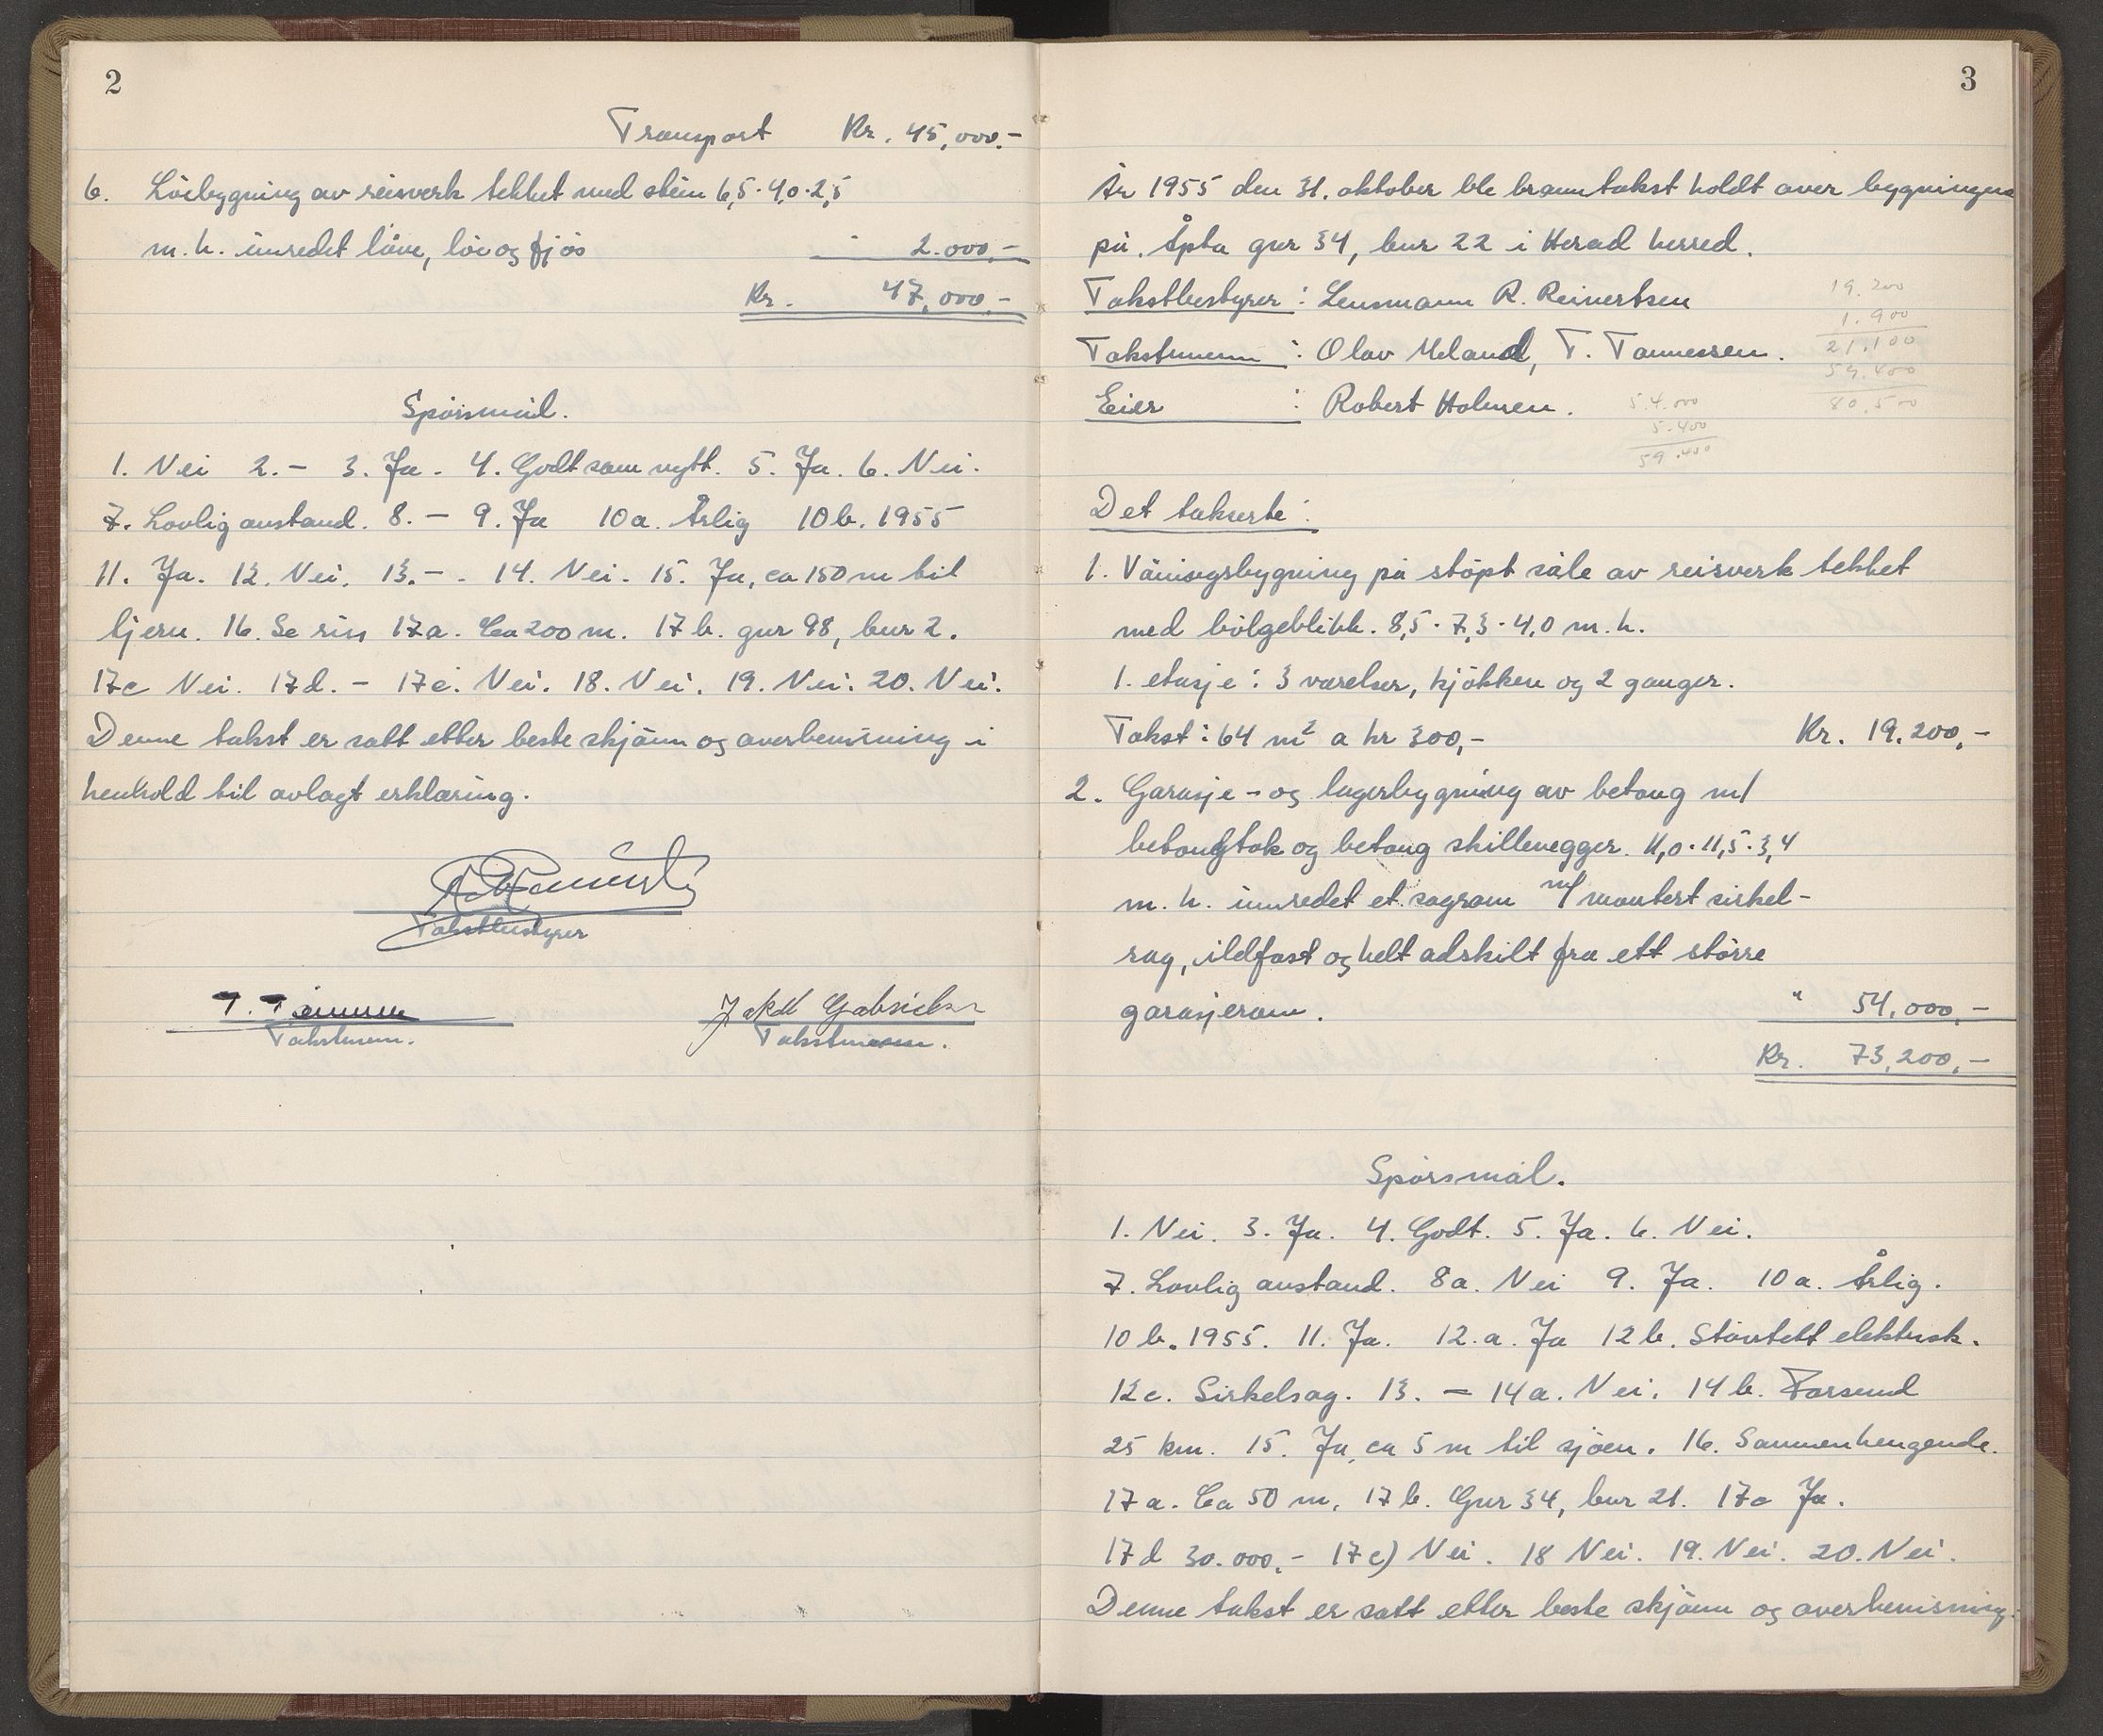 2
Transport Kr. 45,000.-
6. Löebygning av reisverk tekket med stein 6,5·4,0·2,5
m.h. innredet låve, löe og fjös " 2.000,-
Kr. 47,000,-
Spörsmål.
1. Nei 2. - 3. Ja. 4. Godt som nytt. 5. Ja. 6. Nei.
7. Lovlig avstand. 8. - 9. Ja 10a. Årlig 10b. 1955
11. Ja. 12. Nei. 13. - . 14. Nei. 15. Ja, ca 150 m til
tjern. 16. Se riss 17a. Ca 200 m. 17b. gnr 98, bnr 2.
17c Nei. 17d. - 17e. Nei. 18. Nei. 19. Nei. 20. Nei.
Denne takst er satt etter beste skjönn og overbevisning i
henhold til avlagt erklæring.
Takstbestyrer
Takstmann. Takstmann.
3
År 1955 den 31. oktober ble branntakst holdt over bygningene
på Åpta gnr 34, bnr 22 i Herad herred.
Takstbestyrer: Lensmann R. Reinertsen
Takstmenn: Olav Meland, T. Tönnessen.
Eier: Robert Holmen.
19.200
1.900
21.100
59.400
80.500
54.000
5.400
59.400
Det takserte:
1. Våningsbygning på stöpt såle av reisverk tekket
med bölgeblikk. 8,5·7,3·4,0 m.h.
1. etasje: 3 værelser, kjökken og 2 ganger.
Takst: 64 m² a kr 300,- Kr. 19.200,-
2. Garasje- og lagerbygning av betong m/
betongtak og betong skillevegger. 11,0·11,5·3,4
m.h. innredet et sagrom m/ montert sirkel-
sag, ildfast og helt adskilt fra ett större
garasjerom. " 54,000,-
Kr. 73,200,-
Spörsmål.
1. Nei. 3. Ja. 4. Godt. 5. Ja. 6. Nei.
7. Lovlig avstand. 8a. Nei 9. Ja. 10a. Årlig.
10b. 1955. 11. Ja. 12.a. Ja 12b. Stövtett elektrisk.
12c. Sirkelsag. 13. - 14a. Nei. 14b. Farsund
25 km. 15. Ja, ca 5 m til sjöen. 16. Sammenhengende.
17a. Ca 50 m. 17b. Gnr 34, bnr 21. 17c Ja.
17d 30.000.- 17e) Nei. 18 Nei. 19. Nei. 20. Nei.
Denne takst er satt etter beste skjönn og overbevisning